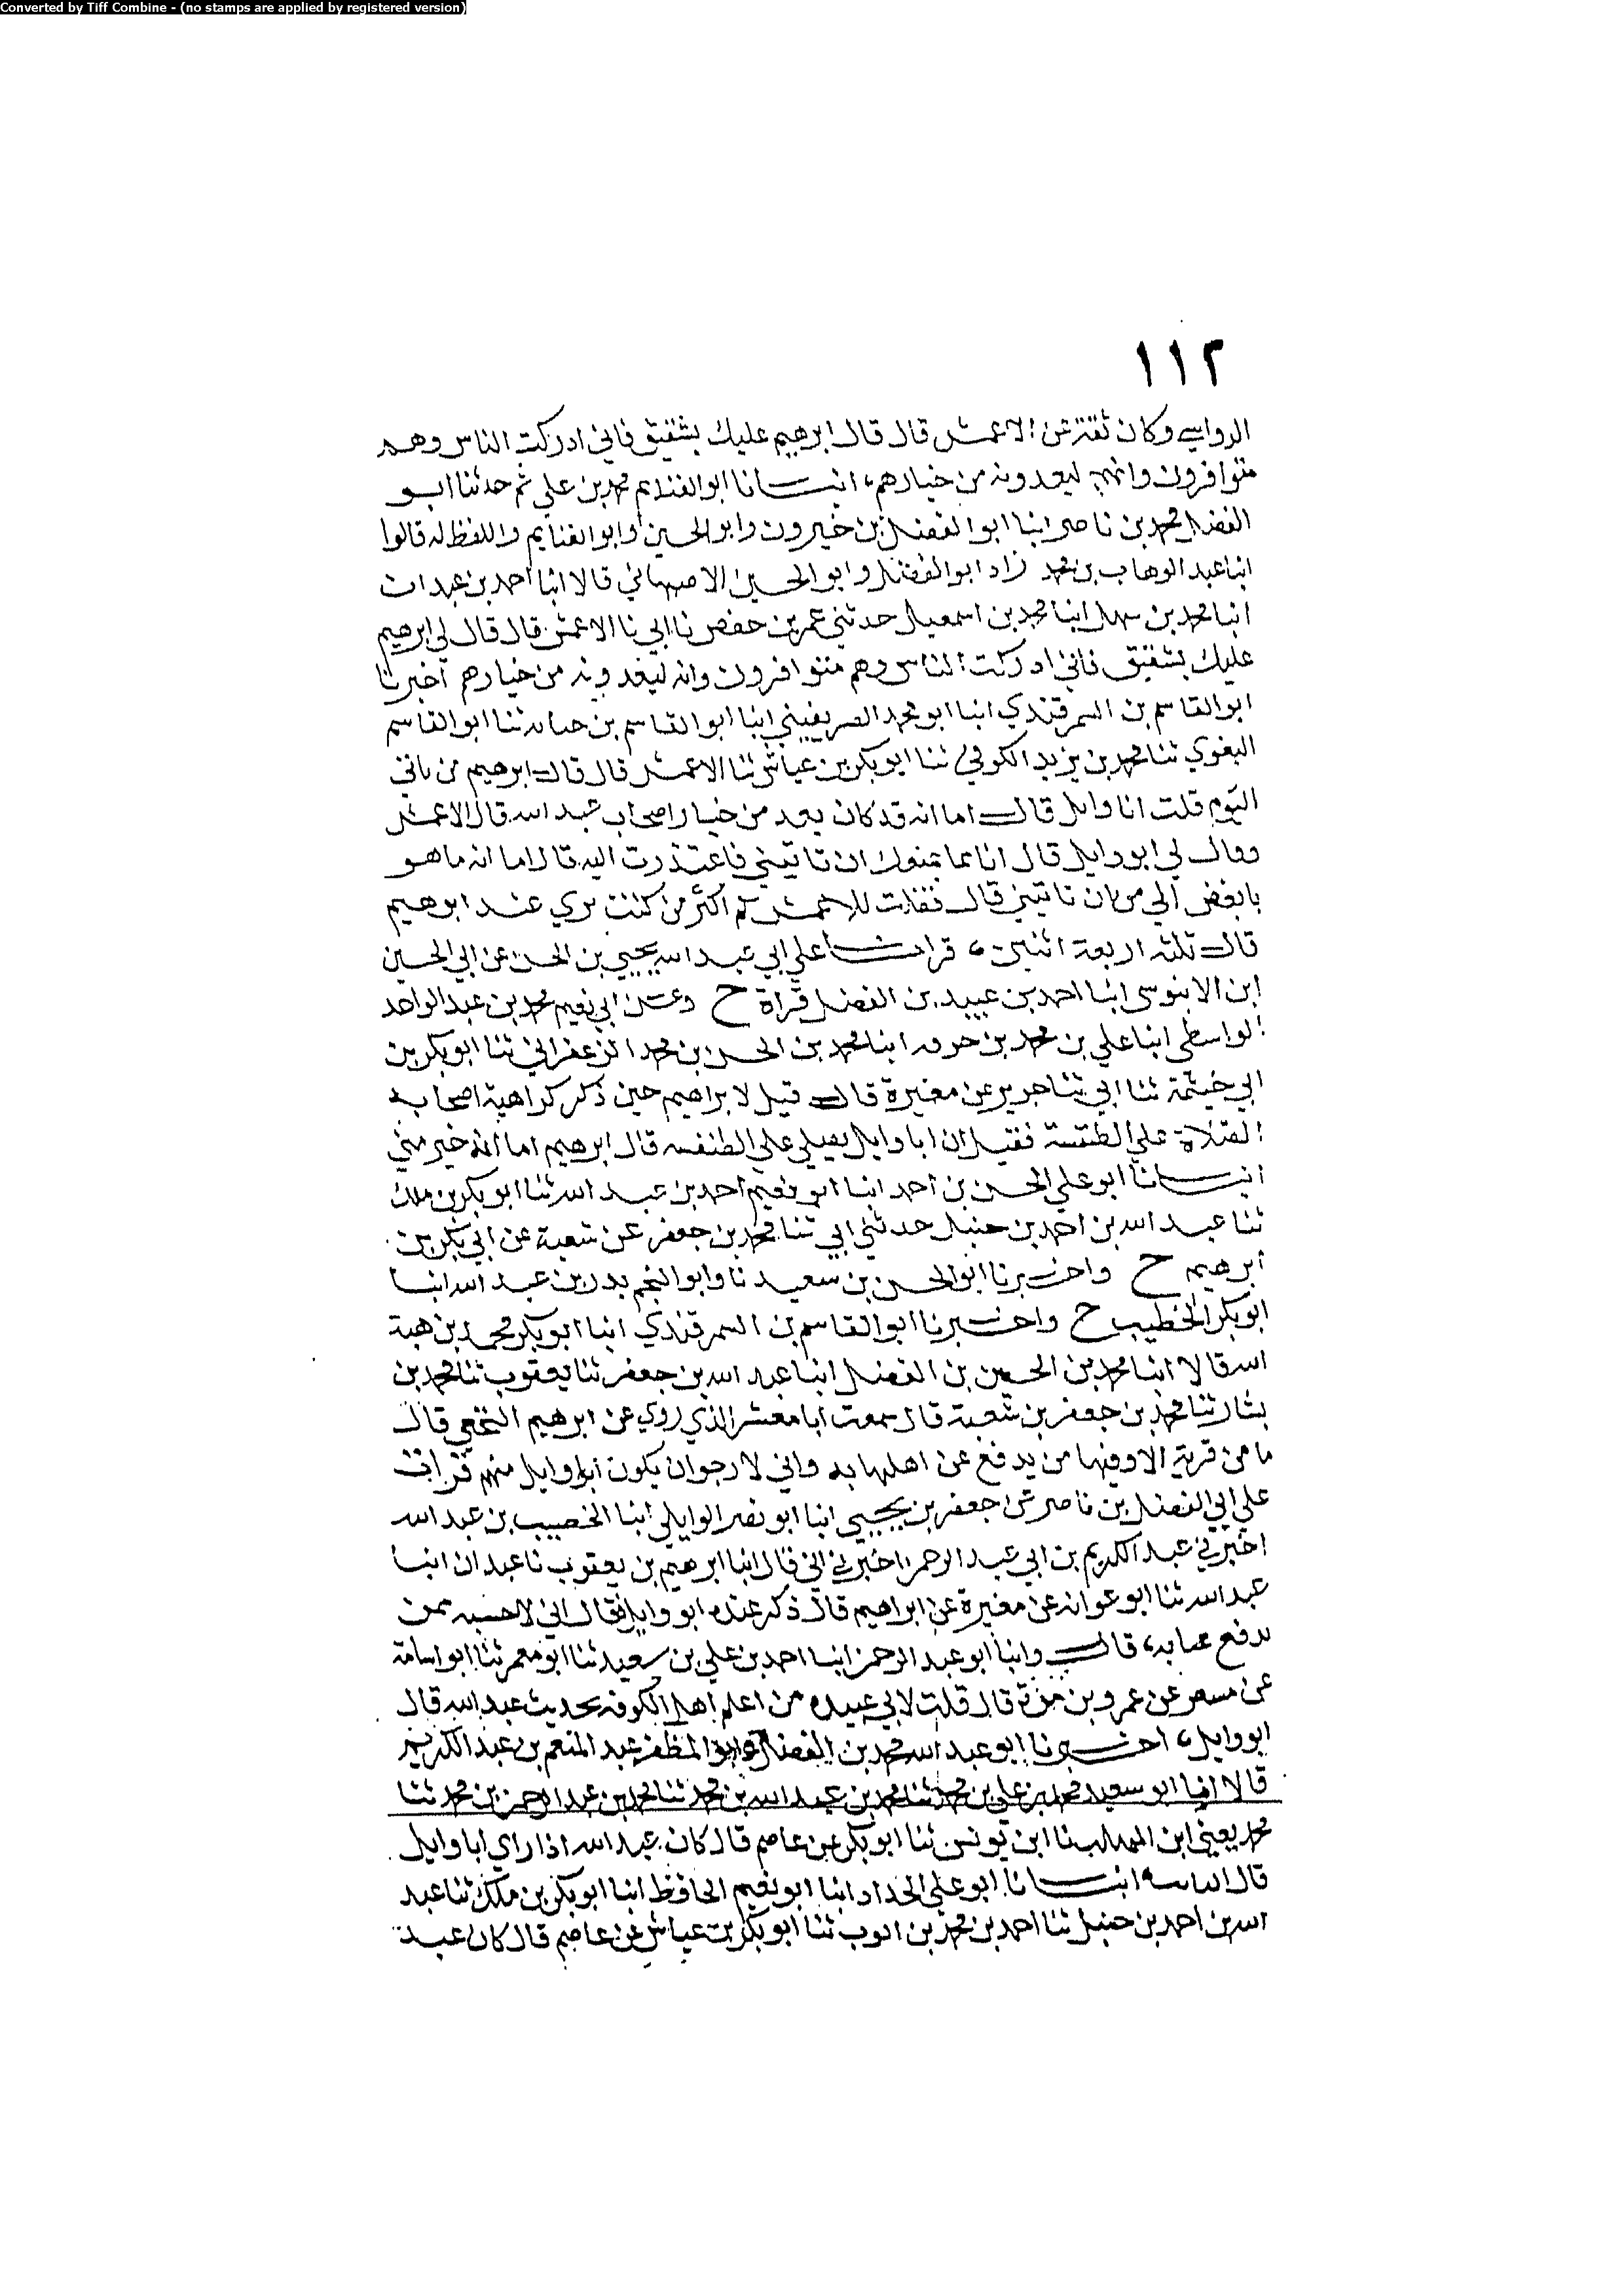 Converted by Tiff Combine - (no stamps are applied by registered version)
١١٢
الرواسي وكان ثقة عن الاعمش قال قال ابرهيم عليك بشقيق فاني ادركت الناس وهم
متوافرون وانهم ليعدونه من خيارهم، انبــانا ابو الغنايم محمد بن علي ثم حدثنا ابو
الفضل محمد بن ناصر انبا ابو الفضل بن خيرون وابو الحسين وابو الغنايم واللفظ له قالوا
انبا عبد الوهاب بن محمد زاد ابو الفضل وابو الحسين الاصبهاني قالا انبا احمد بن عبدان
انبا محمد بن سهل انبا محمد بن اسمعيل حدثني عمر بن حفص نا ابي نا الاعمش قال قال لي ابرهيم
عليك بشقيق فاني ادركت الناس وهم متوافرون وانه ليعدونه من خيارهم اخبرنا
ابو القاسم بن السمرقندي انبا ابو محمد الصريفيني انبا ابو القاسم بن حبابة ثنا ابو القاسم
البغوي ثنا محمد بن يزيد الكوفي ثنا ابو بكر بن عياش ثنا الاعمش قال قال ابرهيم من تاتي
اليوم قلت ابا وايل قال اما انه قد كان يعد من خيار اصحاب عبد الله قال الاعمش
وقال لي ابو وايل قال ان تاتيني فاعتذرت اليه قال اما انه ما هو
بابغض الي من ان تاتيني قال فقلت للاعمش كم اكثر من كنت تري عند ابرهيم
قال ثلثه اربعة اثنين، قرات علي ابي عبد الله يحيي بن الحسن عن ابي الحسين
ابن الابنوسي انبا احمد بن عبيد بن الفضل قراة ح وعــن ابي نعيم محمد بن عبد الواحد
الواسطي انبا علي بن محمد بن خزفه انبا محمد بن الحسين بن محمد الزعفراني ثنا ابو بكر بن
ابي خيثمة ثنا ابي ثنا جرير عن مغيرة قال قيل لابراهيم حين ذكر كراهية اصحابه
الصلاة علي الطنفسة فقيل ان ابا وايل يصلي علي الطنفسه قال ابرهيم اما انه خير مني
انبــانا ابو علي الحسن بن احمد انبا ابو نعيم احمد بن عبد الله ثنا ابو بكر بن ملك
ثنا عبد الله بن احمد بن حنبل حدثني ابي ثنا محمد بن جعفر عن شعبة عن ابي بكر بن
ابرهيم ح واخــبرنا ابو الحسن بن سعيد نا وابو النجم بدر بن عبد الله انبا
ابو بكر الخطيب ح واخــبرنا ابو القاسم بن السمرقندي انبا ابو بكر محمد بن هبة
الله قالا انبا محمد بن الحسين بن الفضل انبا عبد الله بن جعفر ثنا يعقوب ثنا محمد بن
بشار ثنا محمد بن جعفر بن شعبة قال سمعت ابا معشر الذي روي عن ابرهيم النخعي قال
ما من قرية الا وفيها من يدفع عن اهلها به واني لارجوان يكون ابو وايل منهم قرات
علي ابي الفضل بن ناصر عن جعفر بن يحيي انبا ابو نصر الوايلي انبا الخصيب بن عبد الله
اخبرني عبد الكريم بن ابي عبد الرحمن اخبرني ابي قال انبا ابرهيم بن يعقوب نا عبدان انبا
عبد الله ثنا ابو عوانه عن مغيرة عن ابراهيم قال ذكر عنده ابو وايل فقال اني لاحسبه ممن
يدفع عنا به، قال وانبا ابو عبد الرحمن انبا احمد بن علي بن سعيد ثنا ابو معمر ثنا ابو اسامة
عن مسعر عن عمرو بن مرة قال قلت لابي عبيده من اعلم اهل الكوفه بحديث عبد الله قال
ابو وايل، اخــبرنا ابو عبد الله محمد بن الفضل وابو المظفر عبد المنعم بن عبد الكريم
قالا انبا ابو سعيد محمد بن علي بن محمد ثنا محمد بن عبد الله بن محمد ثنا محمد بن عبد الرحمن بن محمد ثنا
محمد يعني ابن المهلب نا ابن يونس ثنا ابو بكر عن عاصم قال كان عبد الله اذا راي ابا وايل
قال انبــانا ابو علي الحداد انبا ابو نعيم الحافظ انبا ابو بكر بن ملك ثنا عبد
الله بن احمد بن حنبل ثنا احمد بن محمد بن ايوب ثنا ابو بكر بن عياش عن عاصم قال كان عبد